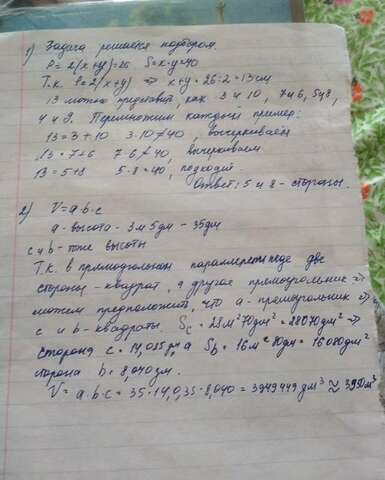 1) Задача решается подбором.
P = 2(x+y)=26 S=x·y=40
Т.к. P=2(x+y) => x+y=26:2=13см
13 можно представить, как 3 и 10, 7 и 6, 5 и 8,
4 и 9. Перемножим каждый пример:
13=3+10 3·10≠40, вычеркиваем
13=7+6 7·6≠40, вычеркиваем
13=5+8 5·8=40, подходит
Ответ: 5 и 8 - стороны.
2) V=a·b·c
a - высота - 3м 5дм - 35дм
c и b - тоже высоты
Т.к. в прямоугольном параллелепипеде две
стороны - квадрат, а другая прямоугольник =>
можем предположить, что a - прямоугольник =>
c и b - квадраты. Sc = 28м²70дм² = 28070дм² =>
сторона c = 14,035дм, а Sb = 16м² 80дм = 16080дм²
сторона b = 8,040дм.
V = a·b·c = 35·14,035·8,040 = 3949449дм³ ≈ 3950м³